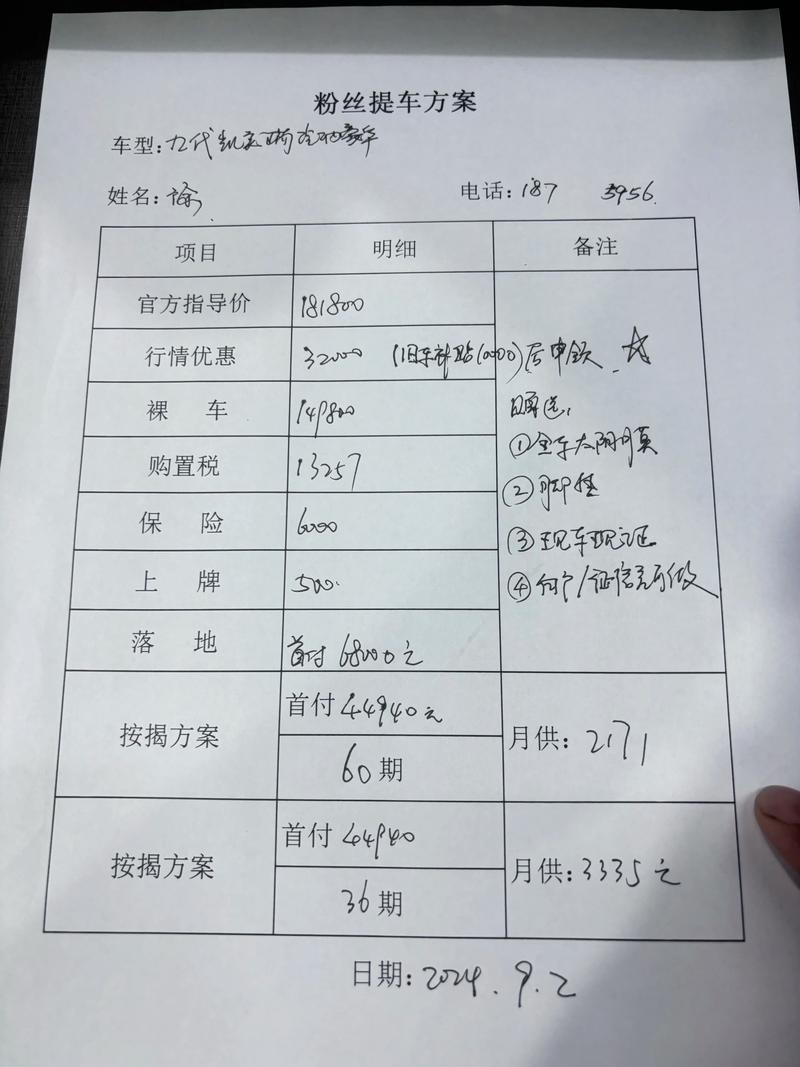 粉丝提车方案
车型: 九代凯美瑞 豪华
姓名: 喻 电话: 187 5956
项目 明细 备注
官方指导价 181800
行情优惠 32000 (旧车补贴10000)后申领 ☆
裸 车 149800 赠送:
①全车太阳膜
购置税 13257 ②脚垫
保 险 6000 ③现车现证
上 牌 500 ④何个/征信Ok可做
落 地 首付68000元
按揭方案 首付 44940元 月供: 2171
60期
按揭方案 首付 44940 月供: 3335元
36期
日期: 2024.9.2